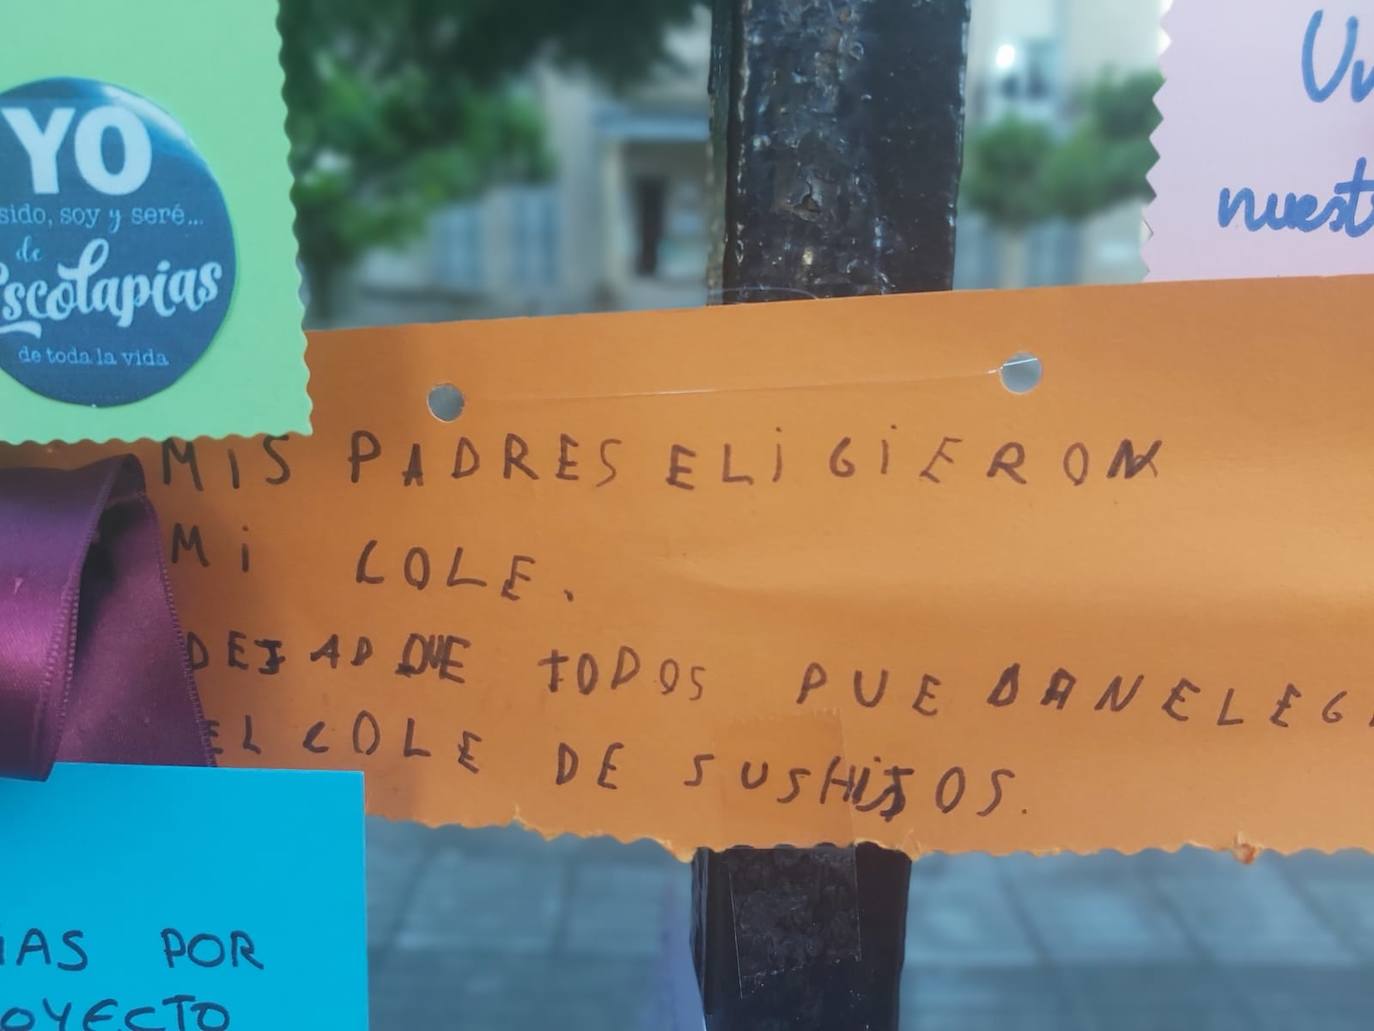 YO
sido, soy y seré...
de
Escolapias
de toda la vida
nuest
MIS PADRES ELIGIERON
MI COLE.
DEJAD QUE TODOS PUEDAN ELEGI
EL COLE DE SUS HIJOS.
POR